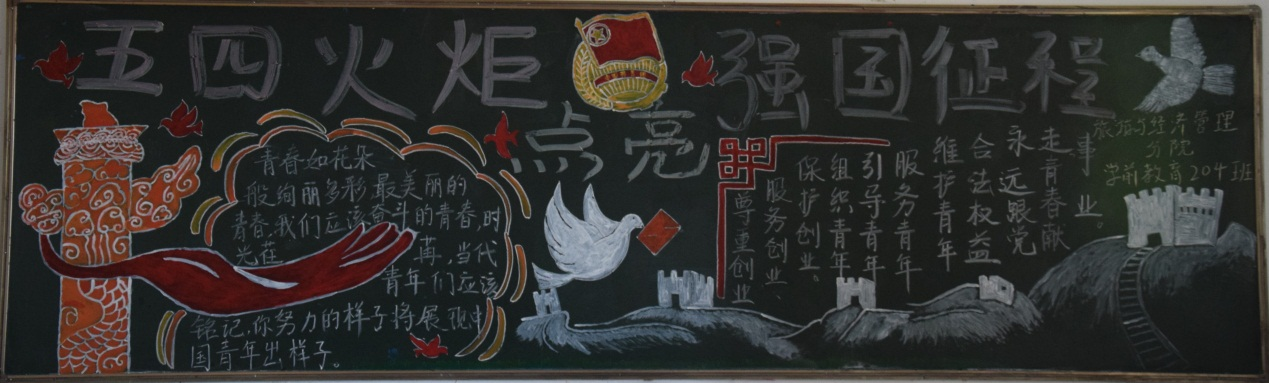 五四火炬
点亮
强国征程
青春如花朵
般绚丽多彩最美丽的
青春,我们应该奋斗的青春,时
光荏苒,当代
青年们应该
铭记,你努力的样子将展现中
国青年出样子。
尊重创业
服务创业、
保护创业。
组织青年
引导青年
服务青年
维护青年
合法权益
永远跟党
走青春献
事业。
旅游与经济管理
分院
学前教育204班